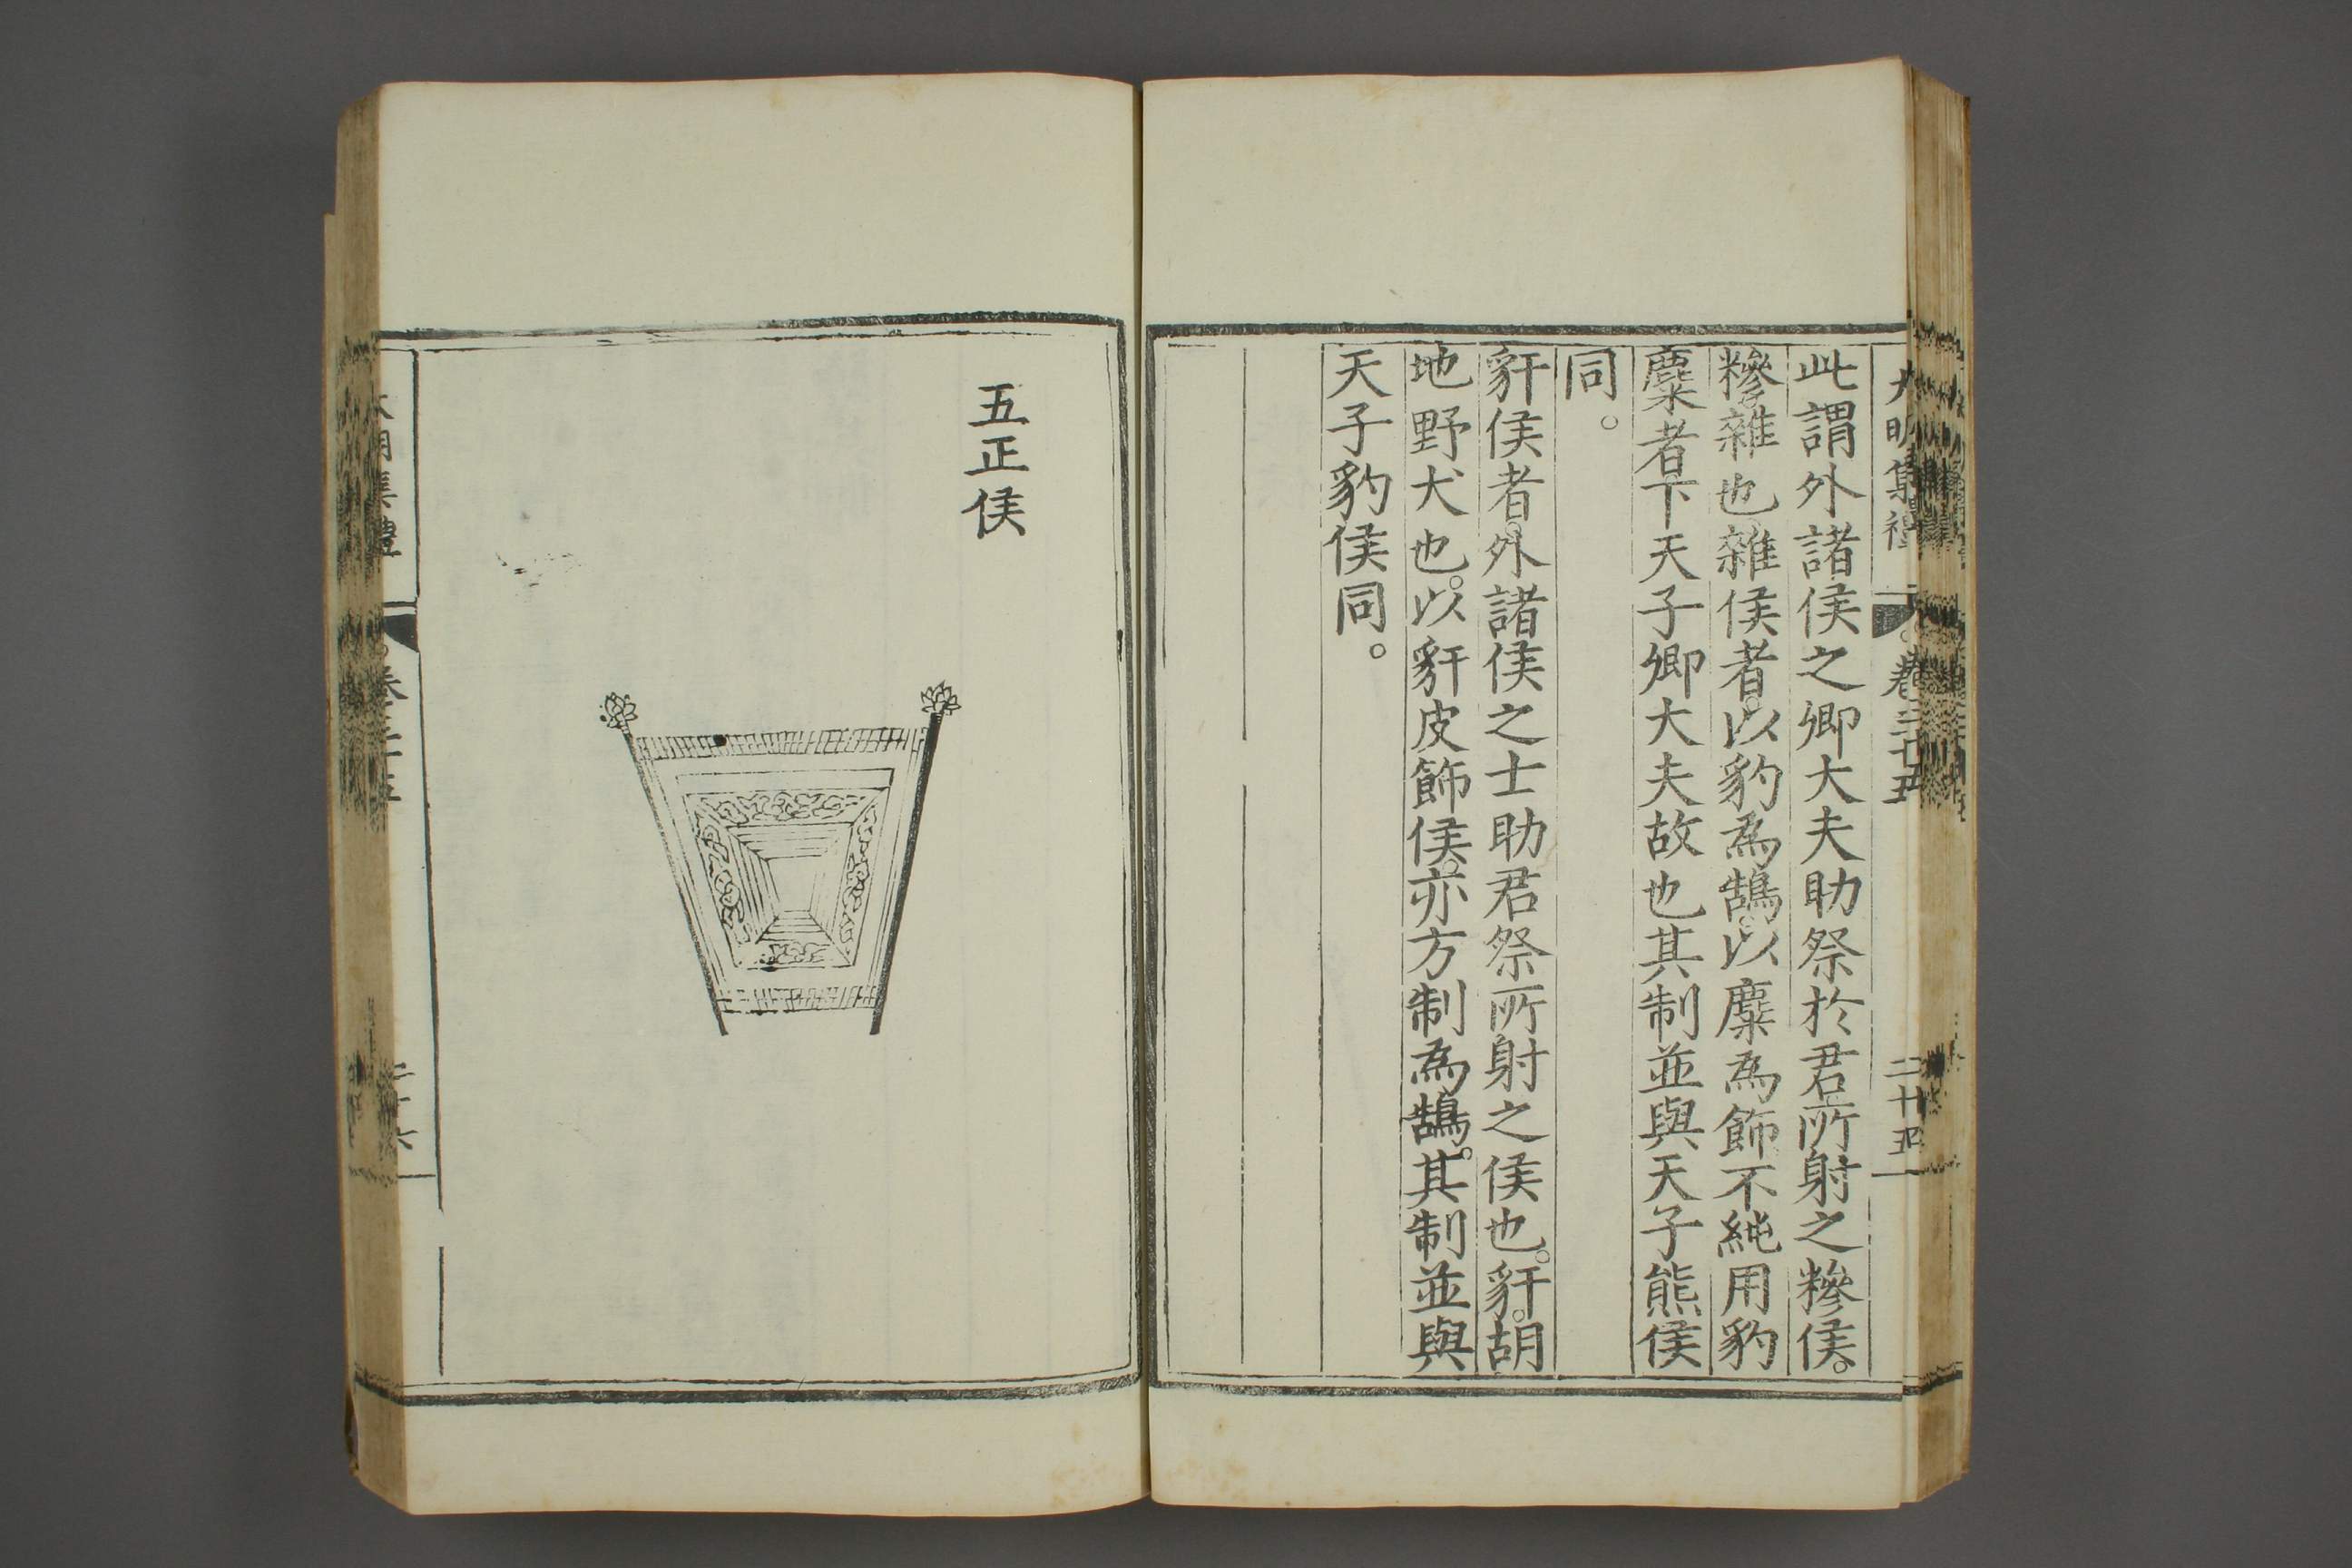 大明集禮 卷三十五 二十五
此謂外諸侯之卿大夫助祭於君所射之糝侯。
糝雜也雜侯者。以豹為鵠。以麋為飾不純用豹
麋者下天子卿大夫故也其制並與天子熊侯
同。
豻侯者。外諸侯之士助君祭所射之侯也。豻。胡
地野犬也。以豻皮飾侯。亦方制為鵠。其制並與
天子豹侯同。
五正侯